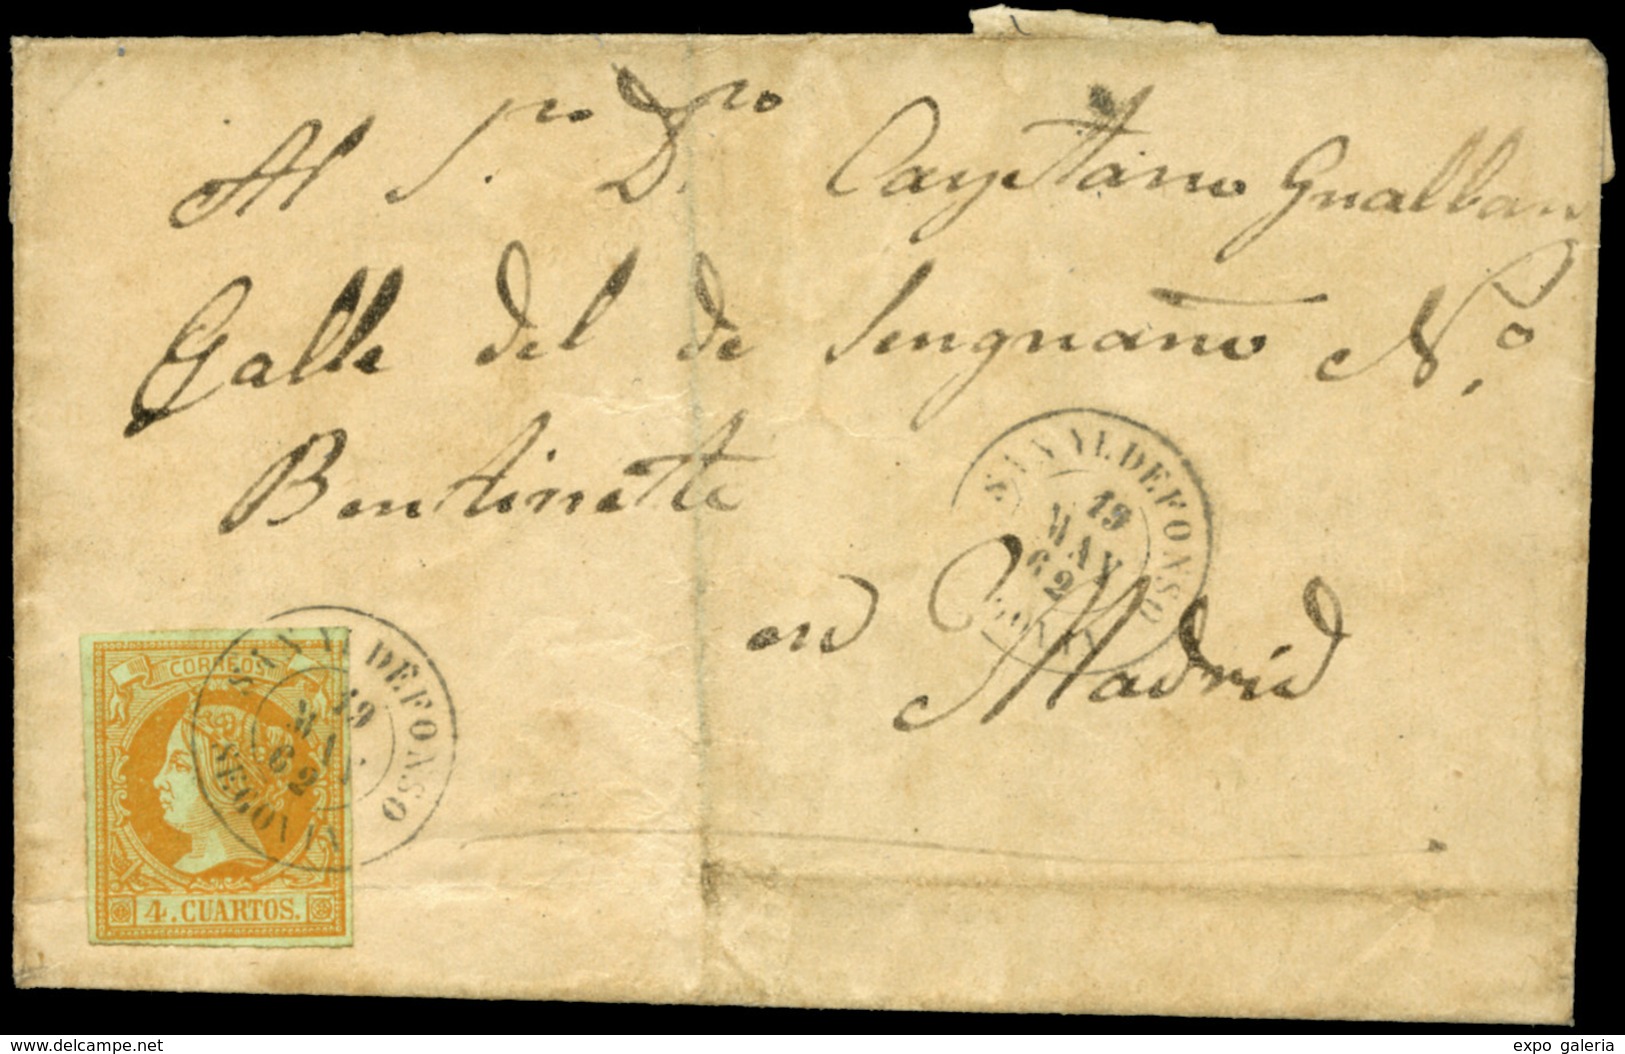 Al S.ro D.ro Cayetano Gualban
Calle del de Sengnaño N.o
Bentinete
en Madrid
SAN YLDEFONSO
19
MAY
62
SEGOVIA
CORREOS
4. CUARTOS.
SAN YLDEFONSO
19
MAY.
62
SEGOVIA
www.delcampe.net
expo galeria